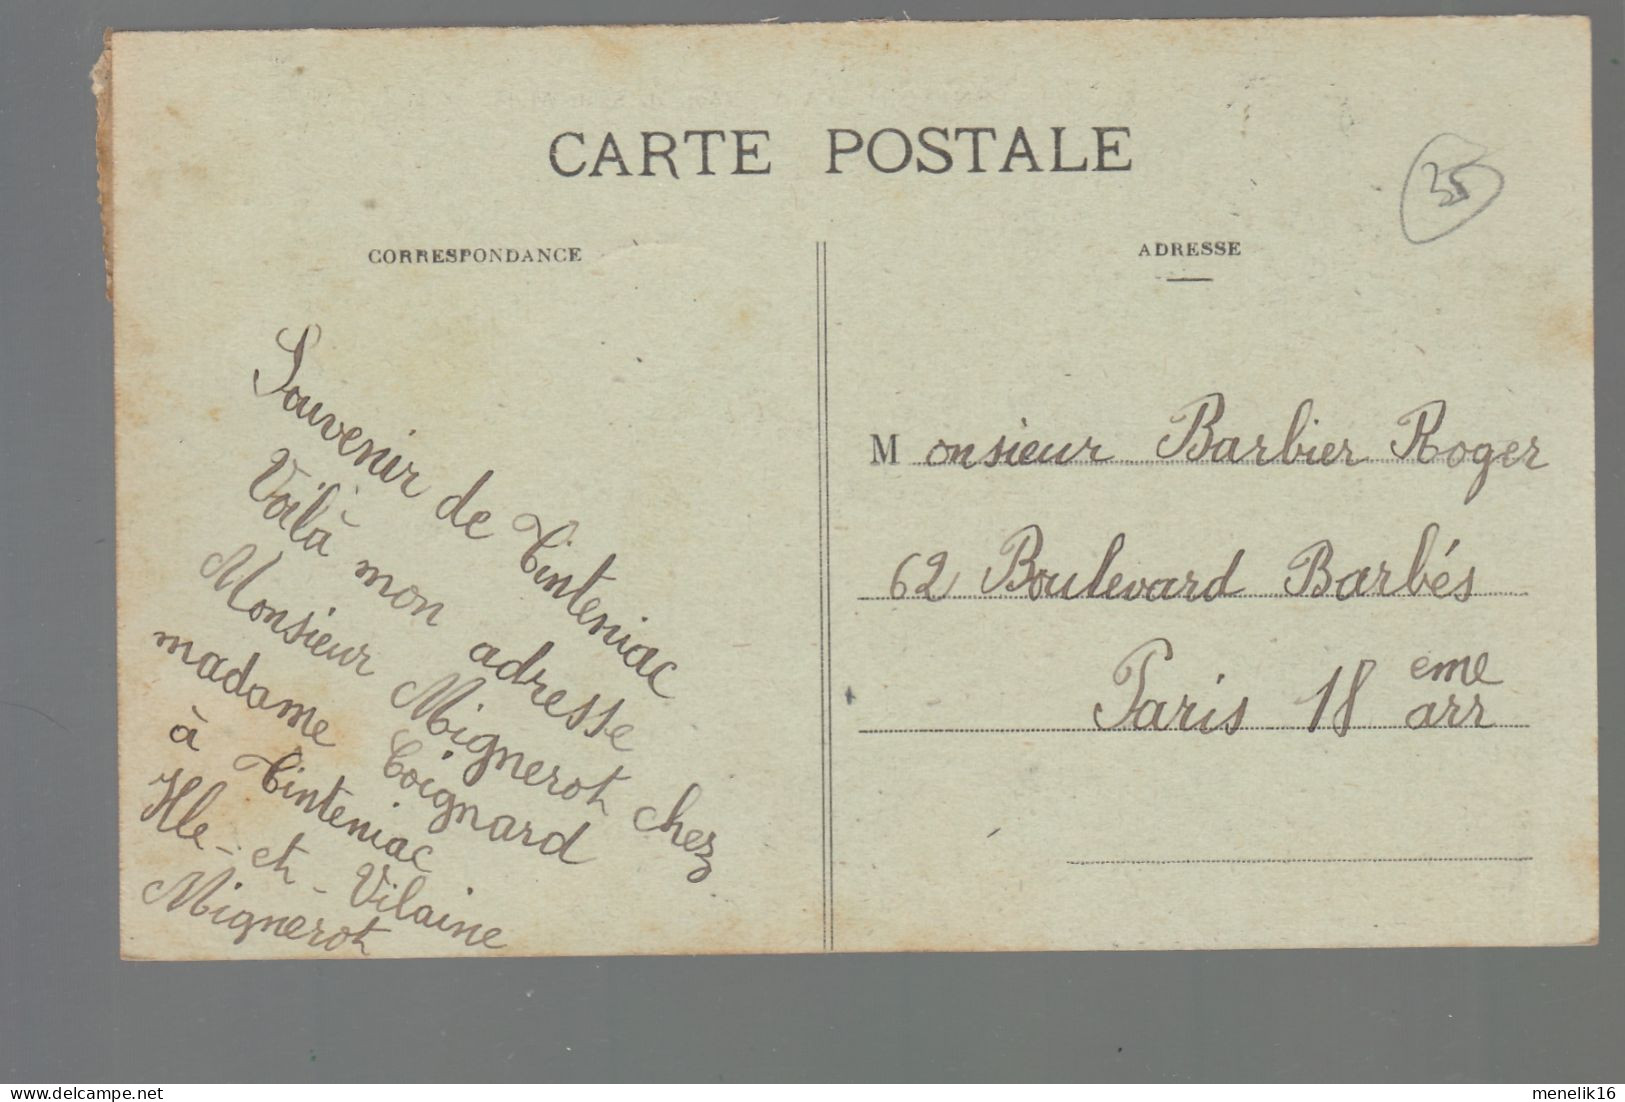 CARTE POSTALE
35
CORRESPONDANCE
Souvenir de Tinteniac
Voilà mon adresse
Monsieur Mignerot chez
madame Coignard
à Tinteniac
Ille-et-Vilaine
Mignerot
ADRESSE
Monsieur Barbier Roger
62 Boulevard Barbés
Paris 18 eme arr
https://www.delcampe.net
menelik16